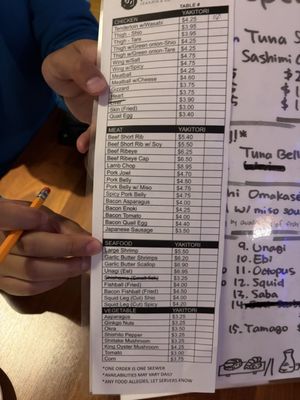 TABLE #
CHICKEN YAKITORI
Tenderloin w/Wasabi $4.25
Thigh - Shio $3.95
Thigh - Tare $3.95
Thigh w/Green onion-Shio $4.25
Thigh w/Green onion-Tare $4.25
Wing w/Salt $3.75
Wing w/Spicy $3.75
Meatball $4.25
Meatball w/Cheese $4.60
Gizzard $3.75
Heart $3.75
Liver $3.90
Skin (Fried) $3.00
Quail Egg $3.40
MEAT YAKITORI
Beef Short Rib $5.40
Beef Short Rib w/ Soy $5.50
Beef Ribeye $6.25
Beef Ribeye Cap $6.50
Lamb Chop $8.95
Pork Jowl $4.70
Pork Belly $4.60
Pork Belly w/ Miso $4.75
Spicy Pork Belly $4.75
Bacon Asparagus $4.00
Bacon Enoki $4.25
Bacon Tomato $4.00
Bacon Quail Egg $4.40
Japanese Sausage $3.50
SEAFOOD YAKITORI
Large Shrimp $5.50
Garlic Butter Shrimps $6.20
Garlic Butter Scallop $6.90
Unagi (Eel) $6.95
Fishball (Fried) $4.00
Bacon Fishball (Fried) $4.50
Squid Leg (Cut) Shio $4.00
Squid Leg (Cut) Spicy $4.20
VEGETABLE YAKITORI
Asparagus $3.25
Ginkgo Nuts $3.25
Okra $3.50
Shishito Pepper $3.25
Shiitake Mushroom $3.25
King Oyster Mushroom $4.25
Tomato $3.00
Corn $3.75
*ONE ORDER IS ONE SKEWER
*AVAILABILITIES MAY VARY DAILY
*ANY FOOD ALLEGIES, LET SERVERS KNOW
Tuna S
Sashimi
Tuna Bell
hi Omakas
w/ miso sou
9. Unagi
10. Ebi
11. Octopus
12. Squid
13. Saba
15. Tamago